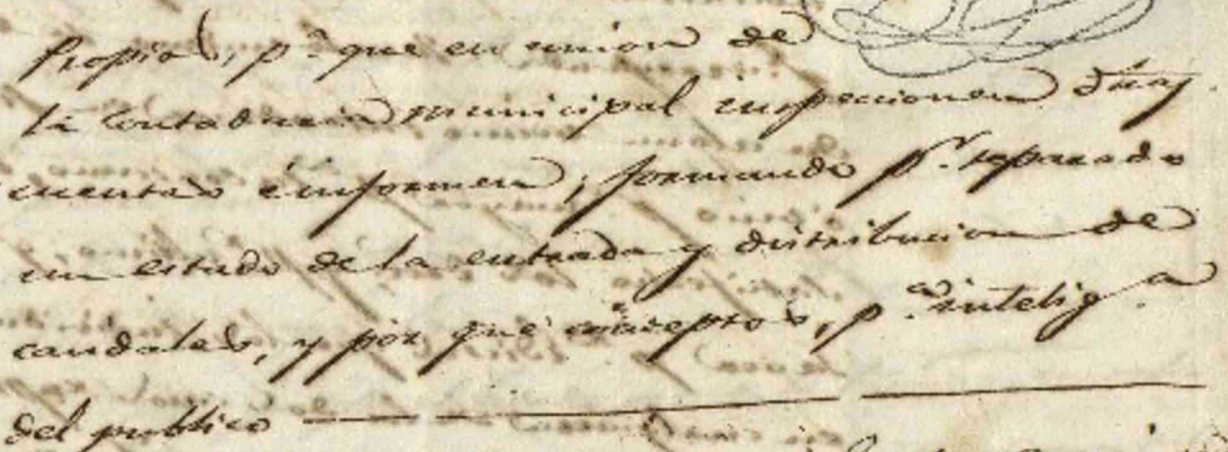 Propios, p.ª que en union de
la Contaduria municipal inspeccionen dhas
cuentas é informen, formando p.r separado
un estado de la entrada y distribucion de
caudales, y por qué conceptos, p.ª intelig.ª
del publico